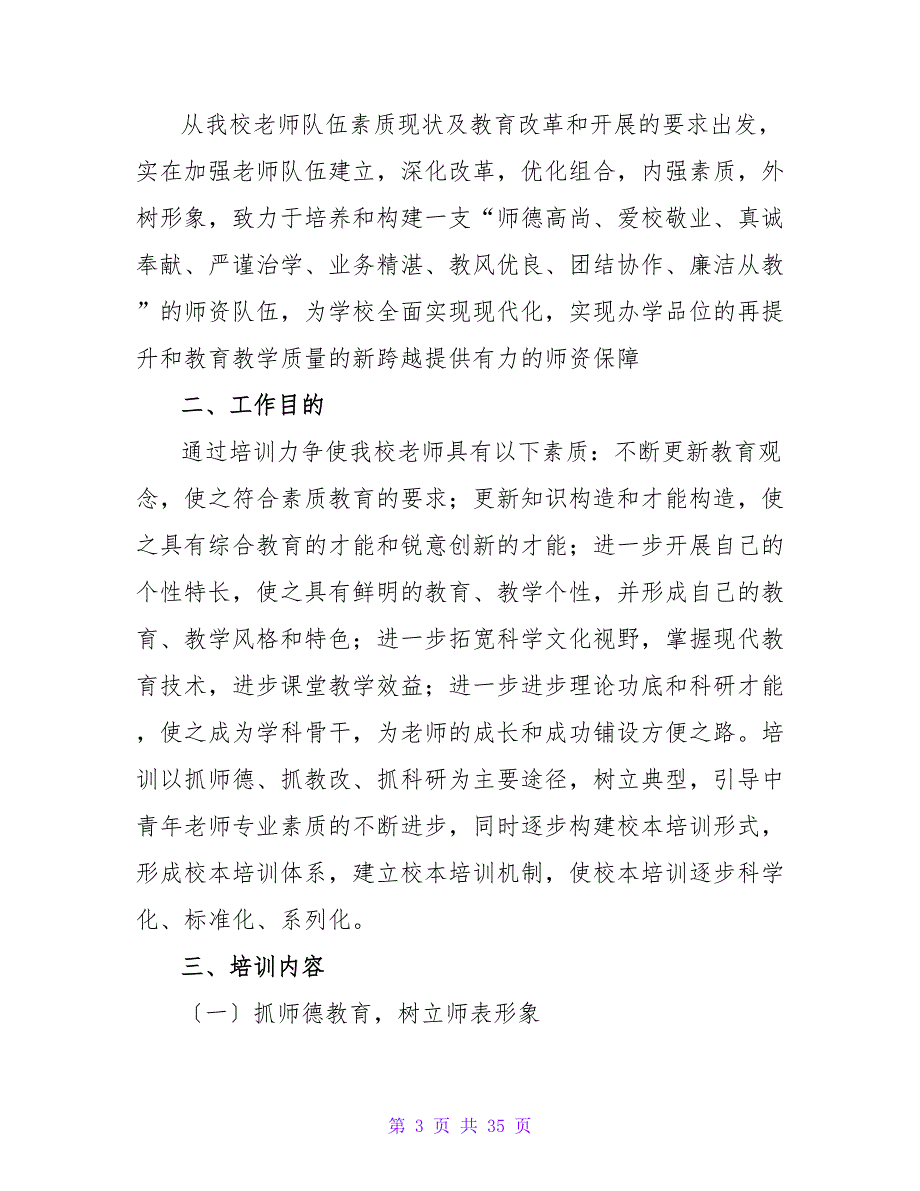 从我校老师队伍素质现状及教育改革和开展的要求出发，
实在加强老师队伍建立，深化改革，优化组合，内强素质，外
树形象，致力于培养和构建一支“师德高尚、爱校敬业、真诚
奉献、严谨治学、业务精湛、教风优良、团结协作、廉洁从教
”的师资队伍，为学校全面实现现代化，实现办学品位的再提
升和教育教学质量的新跨越提供有力的师资保障
二、工作目的
通过培训力争使我校老师具有以下素质：不断更新教育观
念，使之符合素质教育的要求；更新知识构造和才能构造，使
之具有综合教育的才能和锐意创新的才能；进一步开展自己的
个性特长，使之具有鲜明的教育、教学个性，并形成自己的教
育、教学风格和特色；进一步拓宽科学文化视野，掌握现代教
育技术，进步课堂教学效益；进一步进步理论功底和科研才能
，使之成为学科骨干，为老师的成长和成功铺设方便之路。培
训以抓师德、抓教改、抓科研为主要途径，树立典型，引导中
青年老师专业素质的不断进步，同时逐步构建校本培训形式，
形成校本培训体系，建立校本培训机制，使校本培训逐步科学
化、标准化、系列化。
三、培训内容
〔一〕抓师德教育，树立师表形象
第 3 页 共 35 页